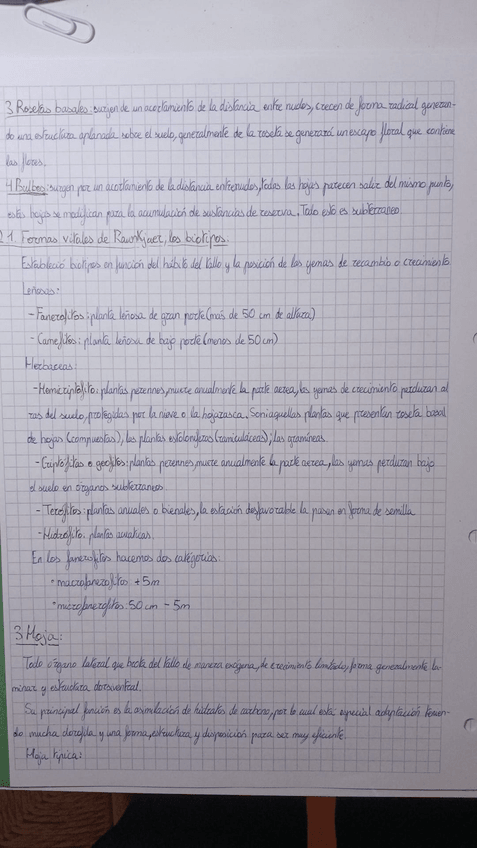 3. Rosetas basales: surgen de un acortamiento de la distancia entre nudos, crecen de forma radical generan-
do una estructura aplanada sobre el suelo, generalmente de la roseta se generará un escapo floral que contiene
las flores.
4. Bulbos: surgen por un acortamiento de la distancia entrenudos, todas las hojas parecen salir del mismo punto,
estas hojas se modifican para la acumulación de sustancias de reserva. Todo esto es subterraneo
1. Formas vitales de Raunkjaer, los biotipos.
Estableció biotipos en función del hábito del tallo y la posición de las yemas de recambio o crecimiento
Leñosas:
- Fanerofitos: planta leñosa de gran porte (más de 50 cm de altura)
- Camefitos: planta leñosa de bajo porte (menos de 50 cm)
Herbaceas:
- Hemicriptofito: plantas perennes, muere anualmente la parte aerea, las yemas de crecimiento perduran al
ras del suelo, protegidas por la nieve o la hojarasca. Son aquellas plantas que presentan roseta basal
de hojas (compuestas), las plantas estoloníferas (ranunculáceas); las gramíneas.
- Criptófitas o geofitos: plantas perennes, muere anualmente la parte aerea, las yemas perduran bajo
el suelo en órganos subterraneos.
- Terofitos: plantas anuales o bienales, la estación desfavorable la pasan en forma de semilla
- Hidrofito: plantas acuaticas.
En los fanerofitos hacemos dos categorías:
• macrofanerofitos +5m
• microfanerofitos: 50 cm - 5m
3. Hoja:
Todo órgano lateral que brota del tallo de manera exogena, de crecimiento limitado, forma generalmente la-
minar y estructura dorsiventral.
Su principal función es la asimilación de hidratos de carbono, por lo cual esta especial adaptación tenien-
do mucha clorofila y una forma, estructura, y disposición para ser muy eficiente.
Hoja típica: